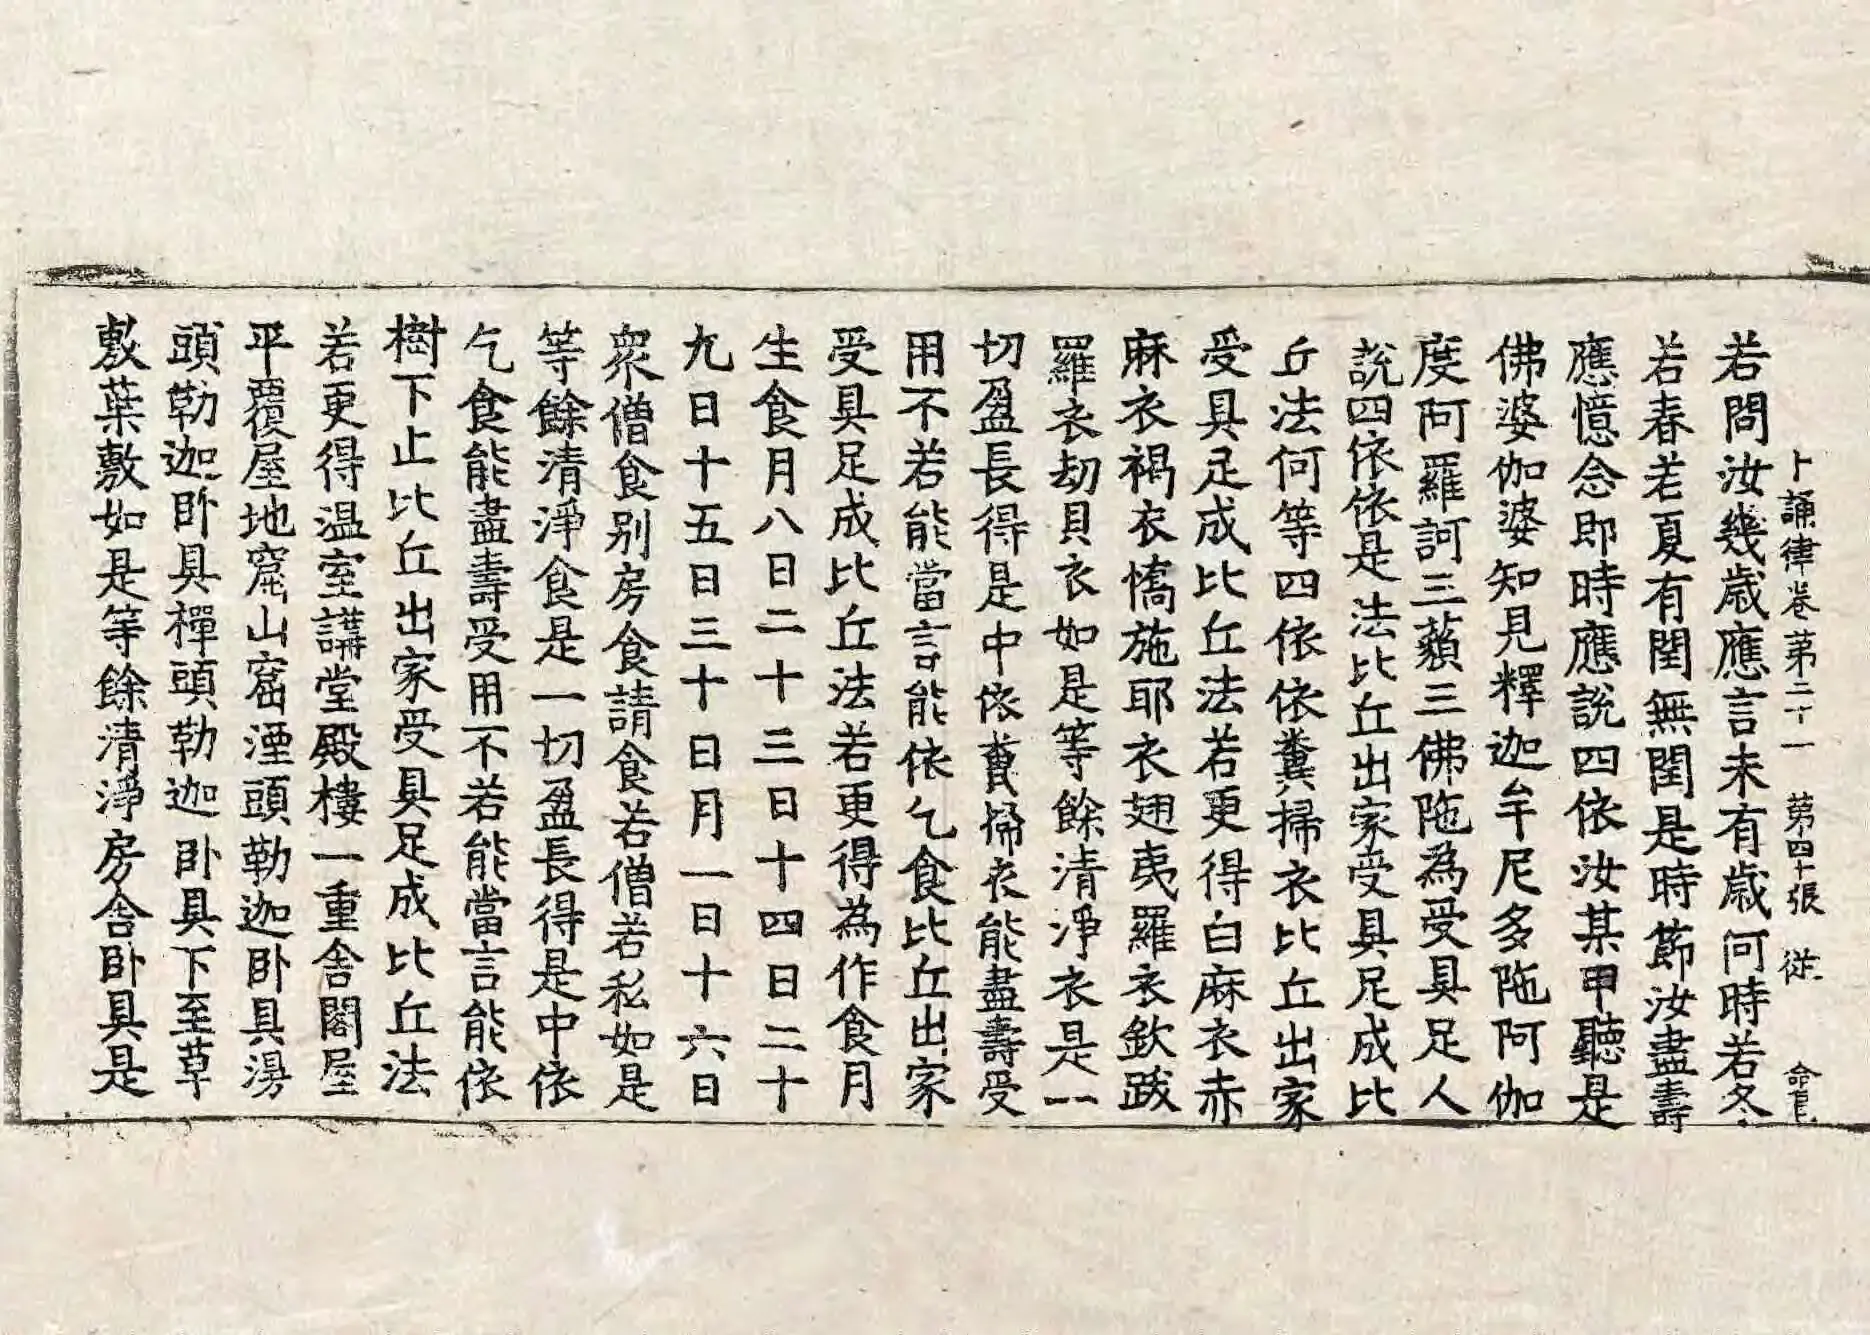 十誦律卷第二十一 第四十張 從 命長
若問汝幾歲應言未有歲何時若冬
若春若夏有閏無閏是時節汝盡壽
應憶念即時應說四依汝某甲聽是
佛婆伽婆知見釋迦牟尼多陁阿伽
度阿羅訶三藐三佛陁為受具足人
說四依依是法比丘出家受具足成比
丘法何等四依依糞掃衣比丘出家
受具足成比丘法若更得白麻衣赤
麻衣褐衣憍施耶衣翅夷羅衣欽跋
羅衣劫貝衣如是等餘清淨衣是一
切盈長得是中依糞掃衣能盡壽受
用不若能當言能依乞食比丘出家
受具足成比丘法若更得為作食月
生食月八日二十三日十四日二十
九日十五日三十日月一日十六日
衆僧食別房食請食若僧若私如是
等餘清淨食是一切盈長得是中依
乞食能盡壽受用不若能當言能依
樹下止比丘出家受具足成比丘法
若更得温室講堂殿樓一重舎閣屋
平覆屋地窟山窟湮頭勒迦卧具湯
頭勒迦卧具禪頭勒迦卧具下至草
敷葉敷如是等餘清淨房舎卧具是